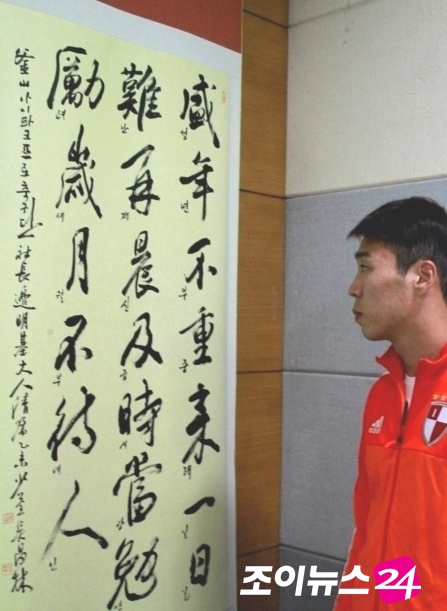 盛年不重來一日
성년부중래일일
難再晨及時當勉
난재신급시당
勵歲月不待人
려세월부대인
釜山아이파크프로축구단 社長 邊明基大人清鑒 乙未
조이뉴스24